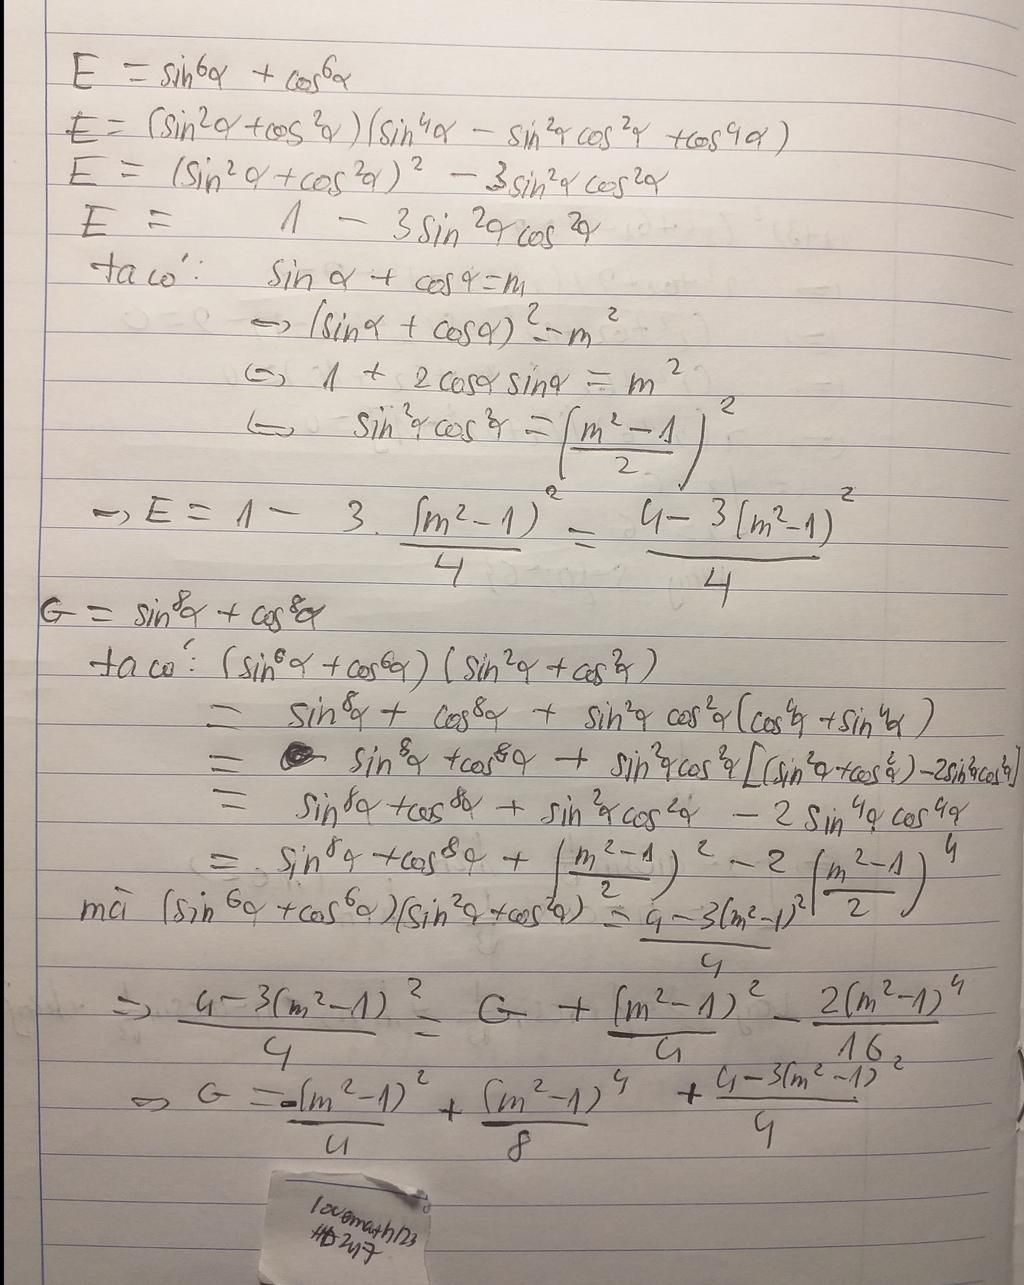 E = sin⁶α + cos⁶α
E = (sin²α + cos²α)(sin⁴α - sin²α cos²α + cos⁴α)
E = (sin²α + cos²α)² - 3sin²α cos²α
E = 1 - 3sin²α cos²α
ta có: sin α + cos α = m
→ (sinα + cosα)² = m²
⇔ 1 + 2cosα sinα = m²
↔ sin²α cos²α = ((m² - 1)/2)²
→ E = 1 - 3. (m² - 1)²/4 = (4 - 3(m² - 1)²)/4
G = sin⁸α + cos⁸α
ta có: (sin⁶α + cos⁶α)(sin²α + cos²α)
= sin⁸α + cos⁸α + sin²α cos²α(cos⁴α + sin⁴α)
= sin⁸α + cos⁸α + sin²αcos²α[(sin²α + cos²α) - 2sin²αcos²α]
= sin⁸α + cos⁸α + sin²αcos²α - 2sin⁴α cos⁴α
= sin⁸α + cos⁸α + ((m² - 1)/2)² - 2((m² - 1)/2)⁴
mà (sin⁶α + cos⁶α)(sin²α + cos²α) = (4 - 3(m² - 1)²)/4
⇒ (4 - 3(m² - 1)²)/4 = G + (m² - 1)²/4 - 2(m² - 1)⁴/16
⇔ G = -(m² - 1)²/4 + (m² - 1)⁴/8 + (4 - 3(m² - 1)²)/4
lovemath123
HD247